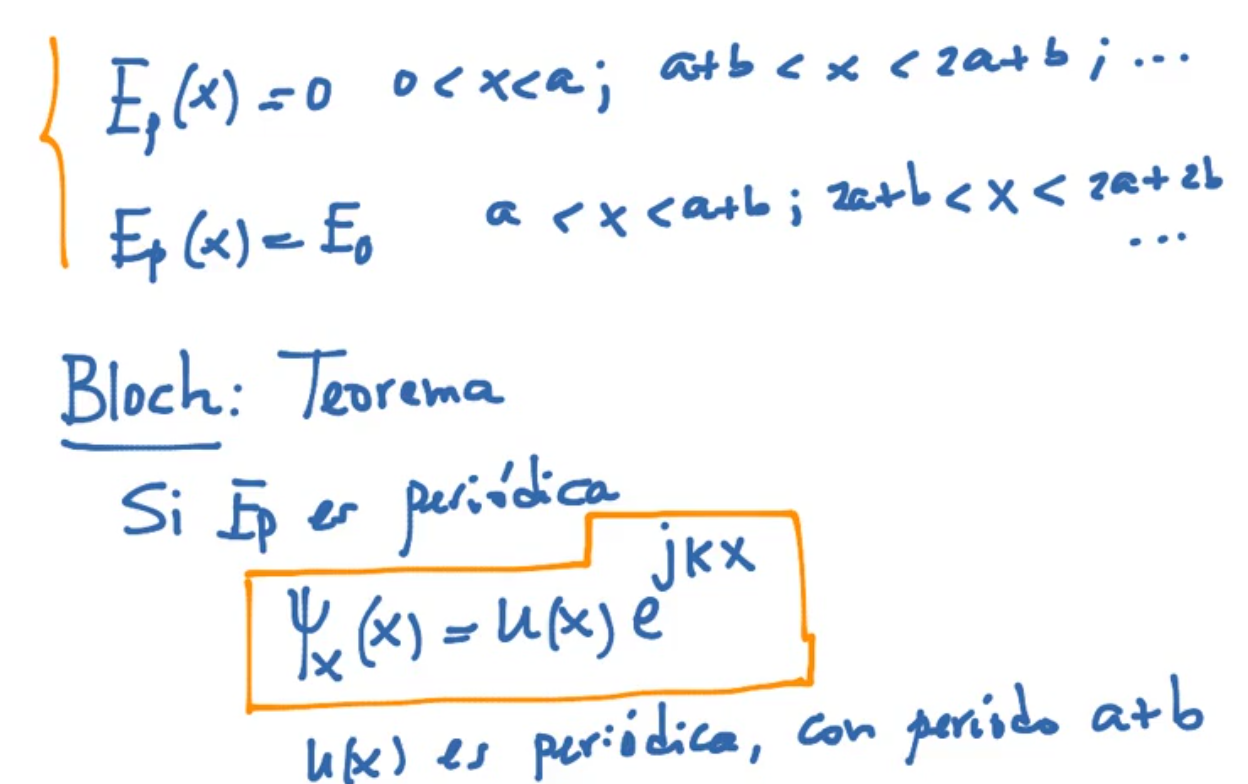 Ep(x) = 0 0 < x < a; a+b < x < 2a+b; ...
Ep(x) = E0 a < x < a+b; 2a+b < x < 2a+2b
...
Bloch: Teorema
Si Ep es periódica
ψx(x) = u(x) e^jkx
u(x) es periódica, con período a+b